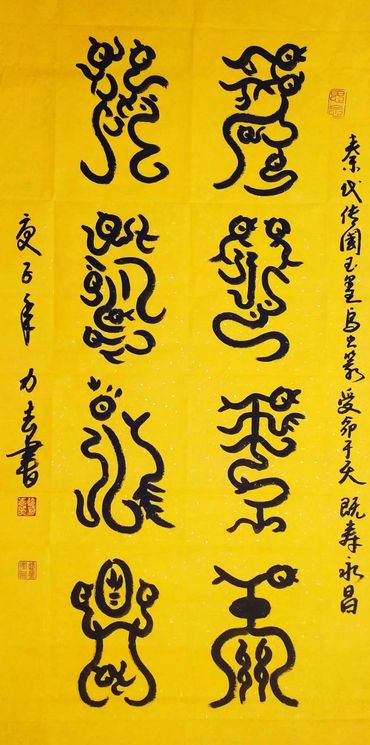 秦代传国玉玺鸟虫篆 受命于天 既寿永昌
受命于天
既壽永昌
庚子年 力 書